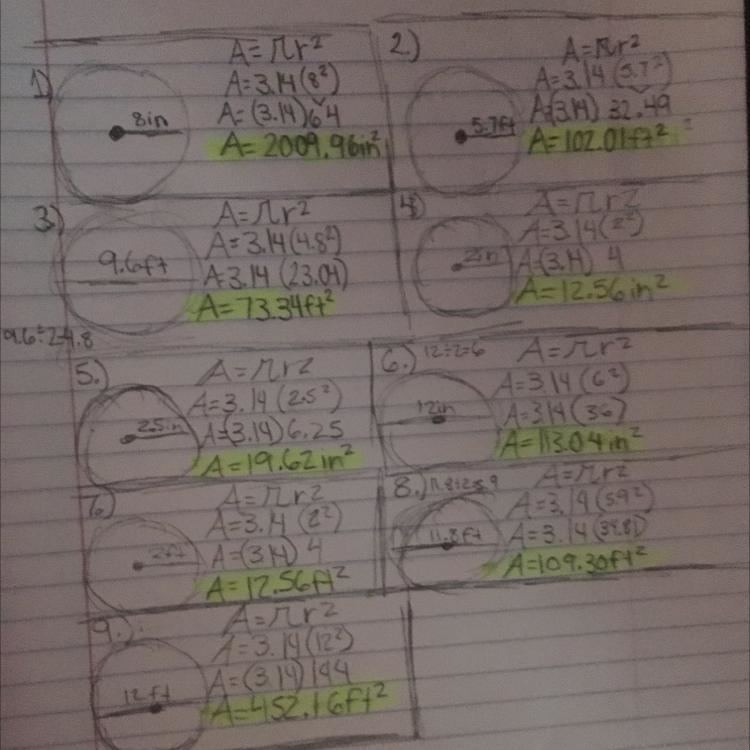 1)
8in
A=πr²
A=3.14(8²)
A=(3.14)64
A=2009.96in²
2)
5.7ft
A=πr²
A=3.14(5.7²)
A=(3.14) 32.49
A=102.01ft²
3)
9.6ft
9.6÷2=4.8
A=πr²
A=3.14(4.8²)
A=3.14(23.04)
A=73.34ft²
4)
2in
A=πr²
A=3.14(2²)
A=(3.14) 4
A=12.56in²
5.)
2.5in
A=πr²
A=3.14(2.5²)
A=(3.14)6.25
A=19.62in²
6.)
12÷2=6
12in
A=πr²
A=3.14(6²)
A=3.14(36)
A=113.04in²
7.)
2ft
A=πr²
A=3.14(2²)
A=(3.14) 4
A=12.56ft²
8.)
11.8ft
A=πr²
A=3.14(5.9²)
A=3.14(34.81)
A=109.30ft²
9.)
12ft
A=πr²
A=3.14(12²)
A=(3.14)144
A=452.16ft²